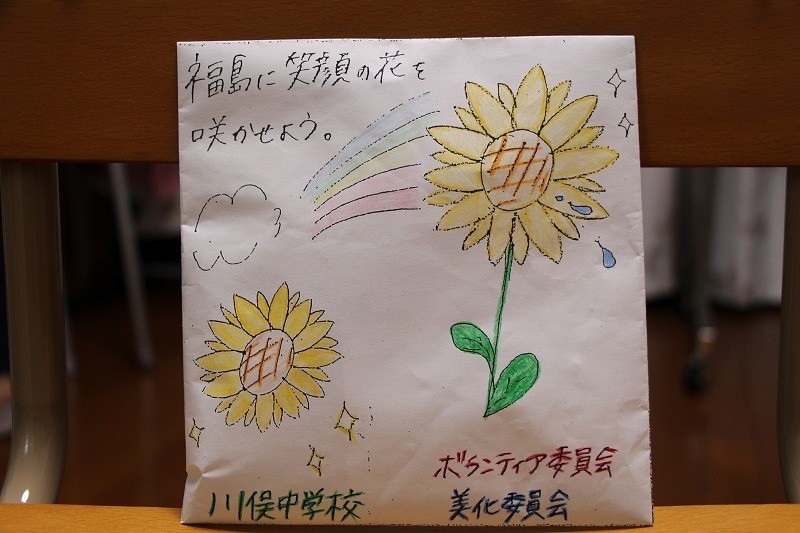 福島に笑顔の花を
咲かせよう。
ボランティア委員会
川俣中学校
美化委員会